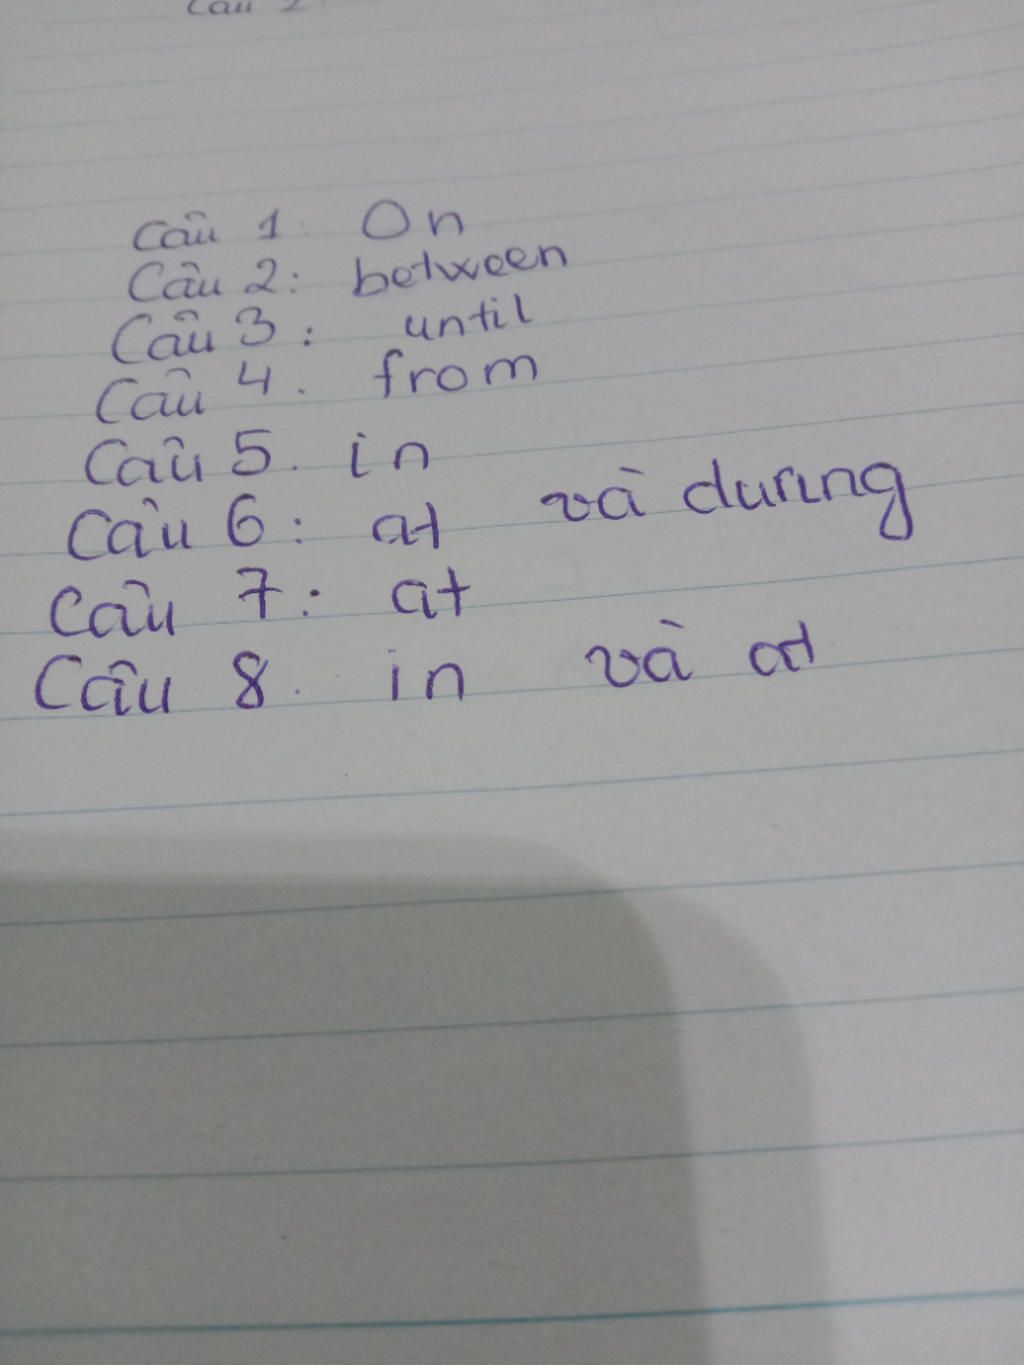 Câu 2
Câu 1: On
Câu 2: between
Câu 3: until
Câu 4. from
Câu 5. in
Câu 6: at và during
Câu 7: at
Câu 8. in và at